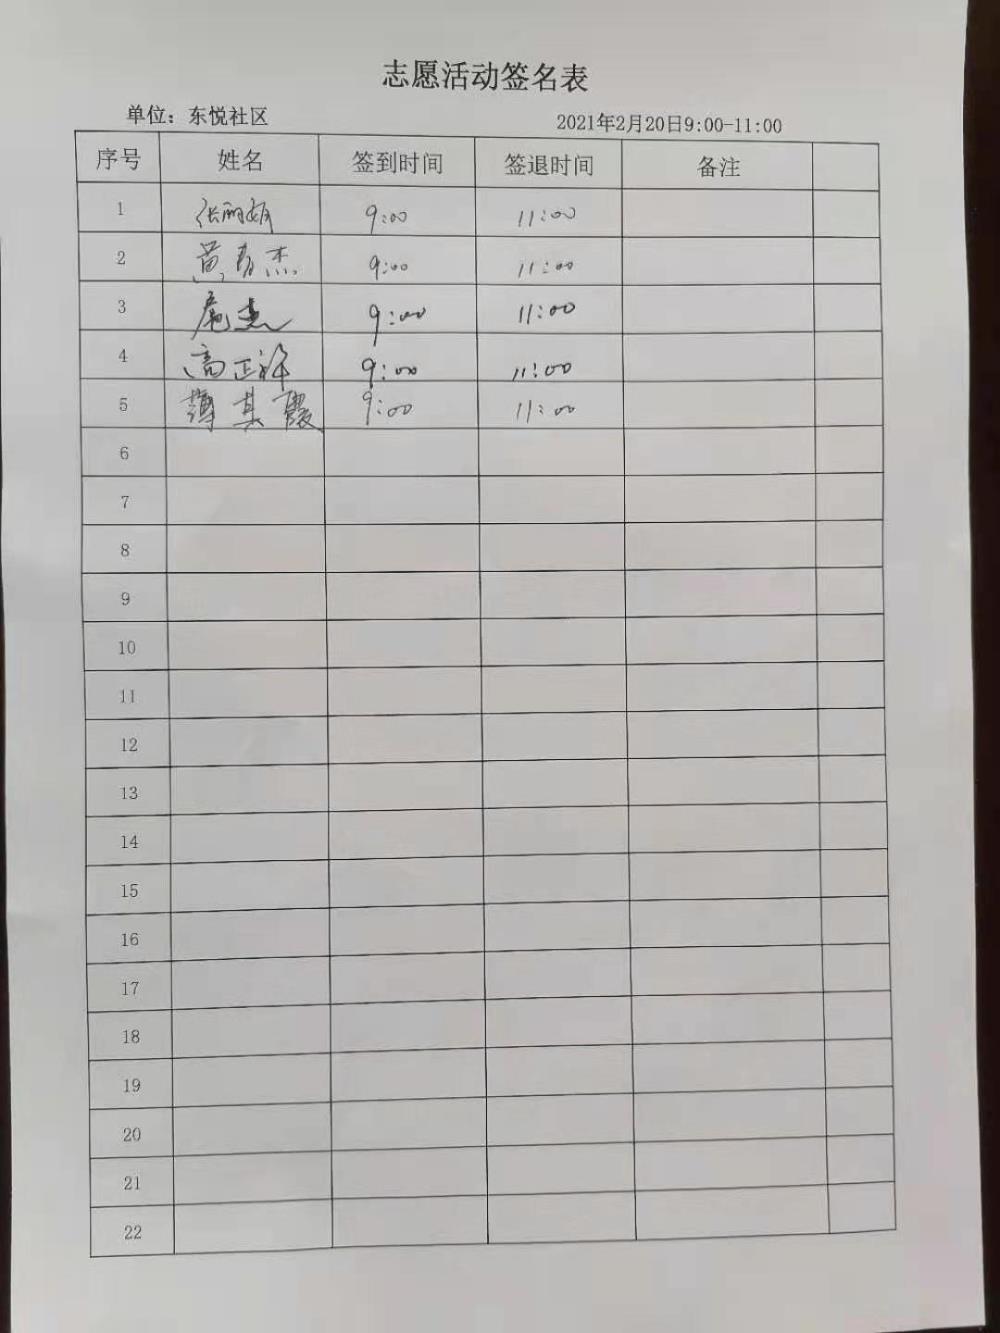 志愿活动签名表
单位：东悦社区 2021年2月20日9:00-11:00
序号 姓名 签到时间 签退时间 备注
1 张丽娟 9:00 11:00
2 黄春杰 9:00 11:00
3 9:00 11:00
4 高正祥 9:00 11:00
5 薄其霞 9:00 11:00
6
7
8
9
10
11
12
13
14
15
16
17
18
19
20
21
22